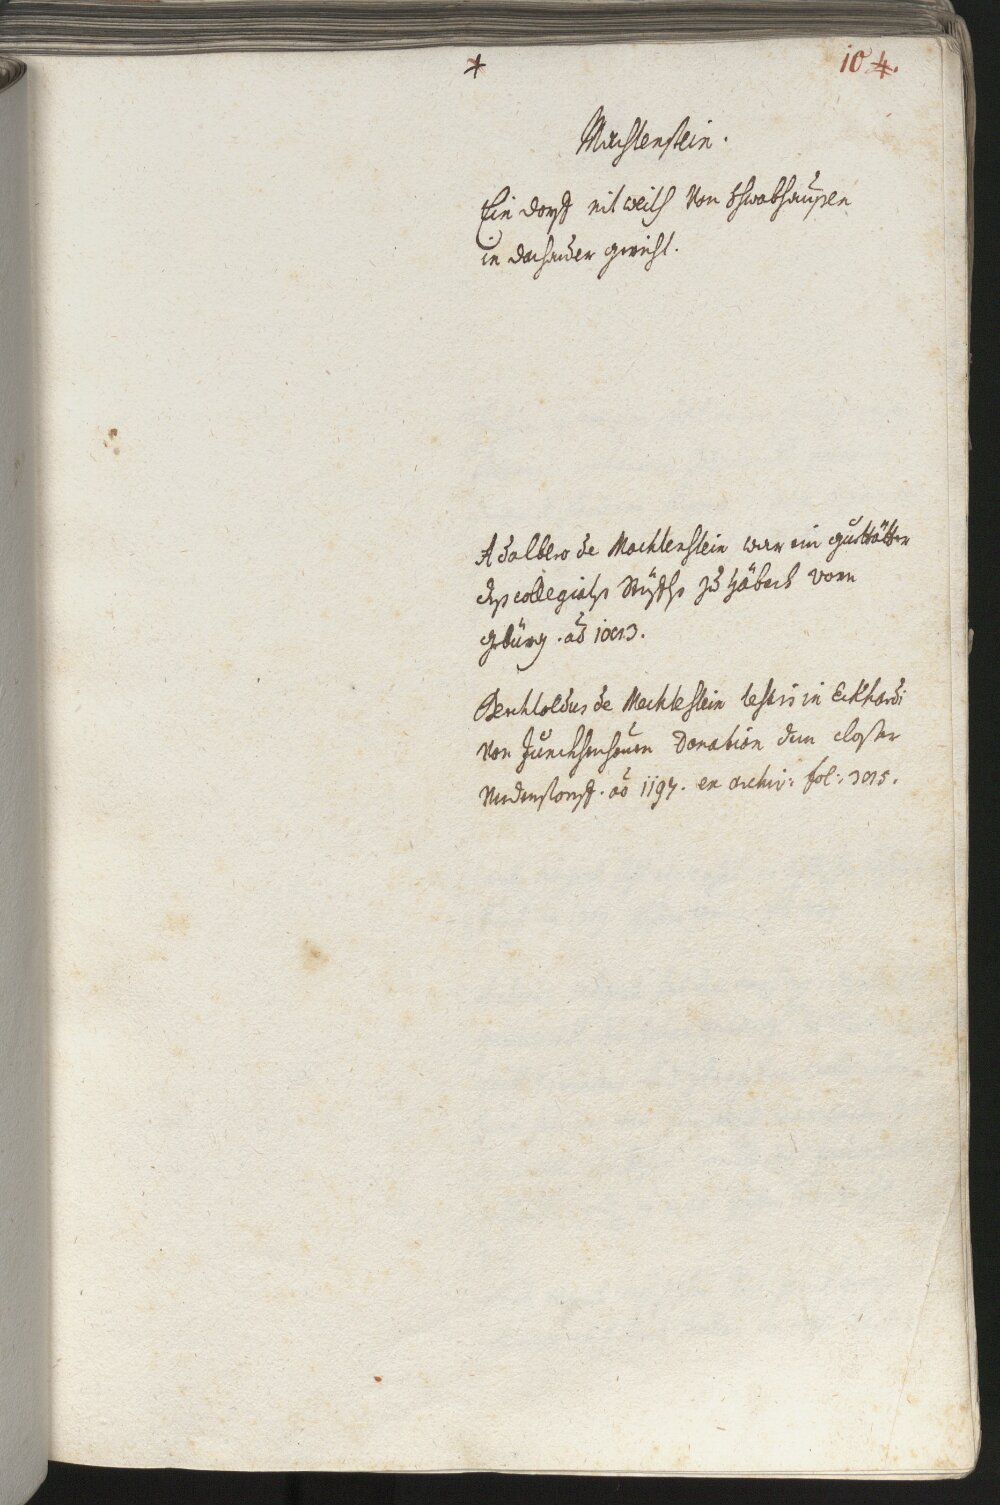 104.
Machtenstein.
Ein dorff nit weith von Schwabhausen
in dachauer gericht.
Adalbero de Machtenstein war ein guttätter
des collegiats Stüffts zu Häbach vorm
gebürg. ao 1073.
Berchtoldus de Mechtestein testis in Eckhardi
von Junckhenhouen Donation dem closter
Understorff. ao 1197. ex archiv: fol: 3015.